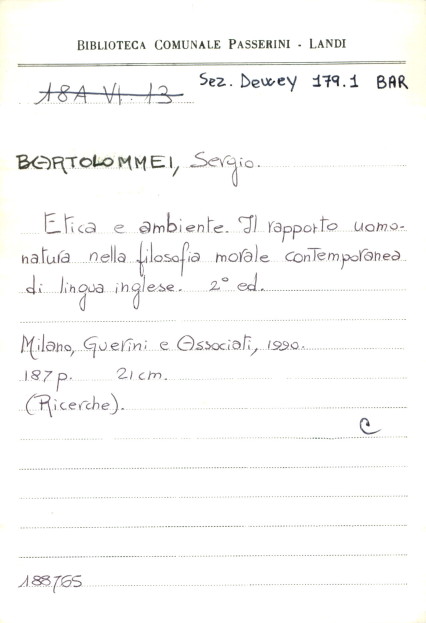 BIBLIOTECA COMUNALE PASSERINI - LANDI
18A VI. 13 Sez. Dewey 179.1 BAR
BARTOLOMMEI, Sergio.
Etica e ambiente. Il rapporto uomo-
natura nella filosofia morale contemporanea
di lingua inglese. 2° ed.
Milano, Guerini e Associati, 1990.
187 p. 21 cm.
(Ricerche).
C
188765